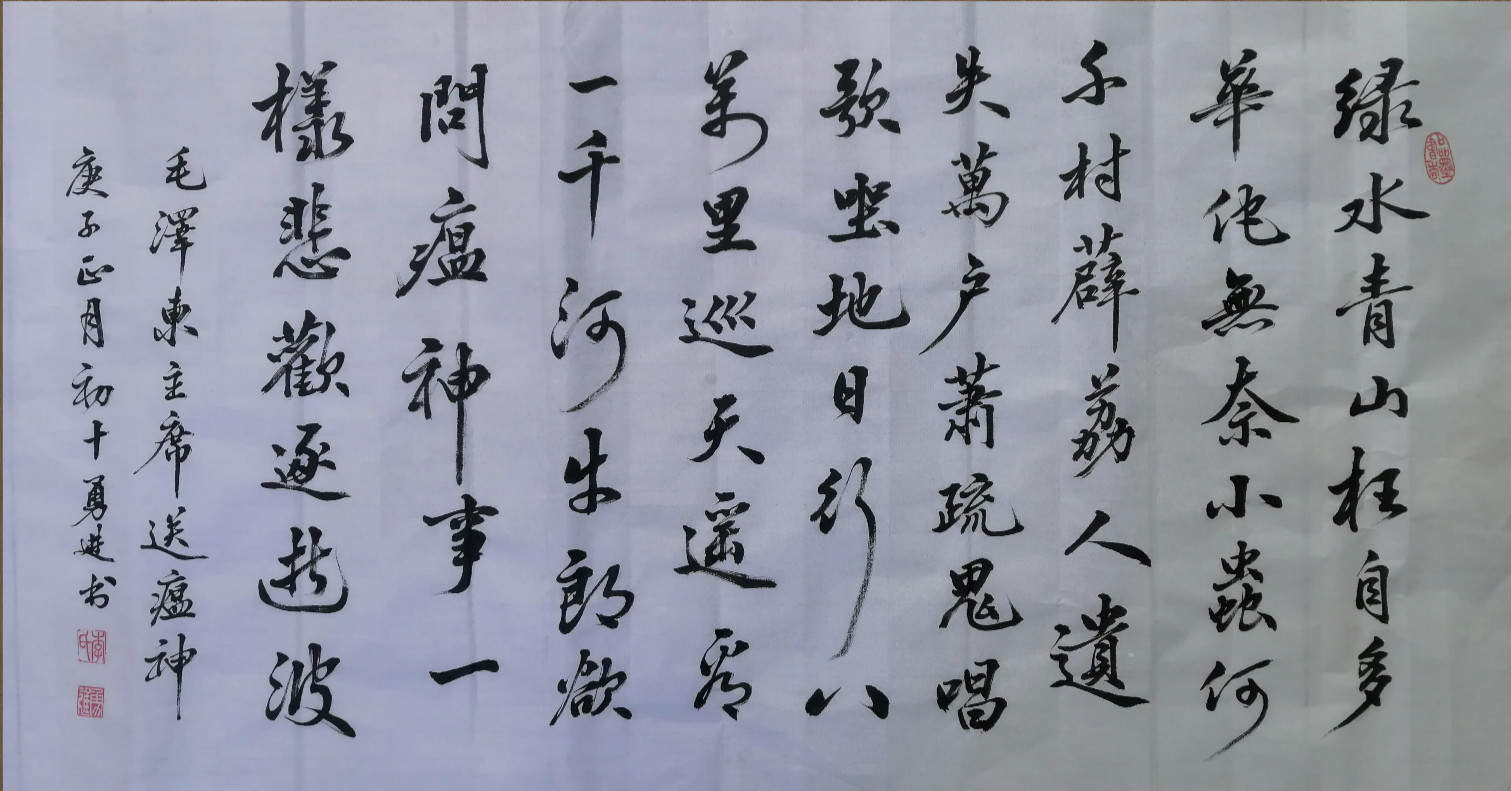 绿水青山枉自多
華佗無奈小蟲何
千村薜荔人遺
失萬户蕭疏鬼唱
歌坐地日行八
萬里巡天遥看
一千河牛郎欲
問瘟神事一
樣悲歡逐逝波
毛澤東主席送瘟神
庚子正月初十勇進书
李氏